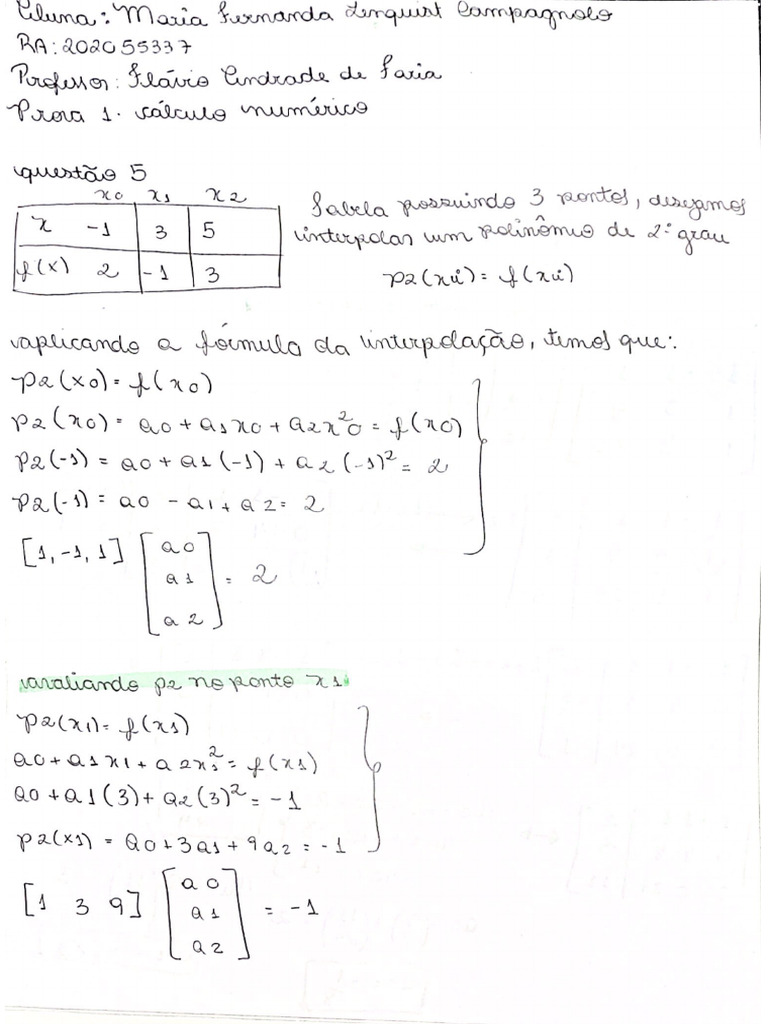 Aluna: Maria Fernanda Lenquist Campagnolo
RA: 202055337
Professor: Flávio Andrade de Faria
Prova 1. cálculo numérico
questão 5
x0 x1 x2
x -1 3 5
f(x) 2 -1 3
Tabela possuindo 3 pontos, desejamos
interpolar um polinômio de 2º grau
p2(xi) = f(xi)
aplicando a fórmula da interpolação, temos que:
p2(x0) = f(x0)
p2(x0) = a0 + a1x0 + a2x²0 = f(x0)
p2(-1) = a0 + a1(-1) + a2(-1)² = 2
p2(-1) = a0 - a1 + a2 = 2
[1, -1, 1] [a0
a1 = 2
a2]
avaliando p2 no ponto x1.
p2(x1) = f(x1)
a0 + a1x1 + a2x²1 = f(x1)
a0 + a1(3) + a2(3)² = -1
p2(x1) = a0 + 3a1 + 9a2 = -1
[1 3 9] [a0
a1 = -1
a2]